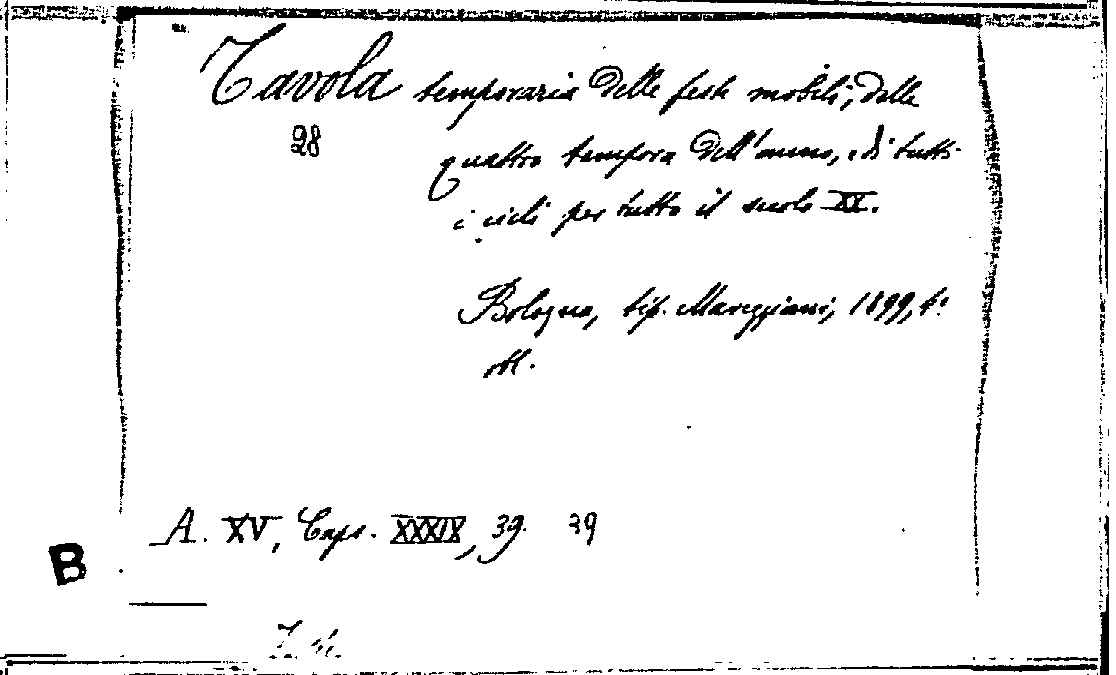 Tavola temporaria delle feste mobili, delle
28
quattro tempora dell'anno, di tutti
i cicli per tutto il secolo XX.
Bologna, tip. Mareggiani, 1899, 4°
obl.
A. XV, Caps. XXXIX, 39. 39
B